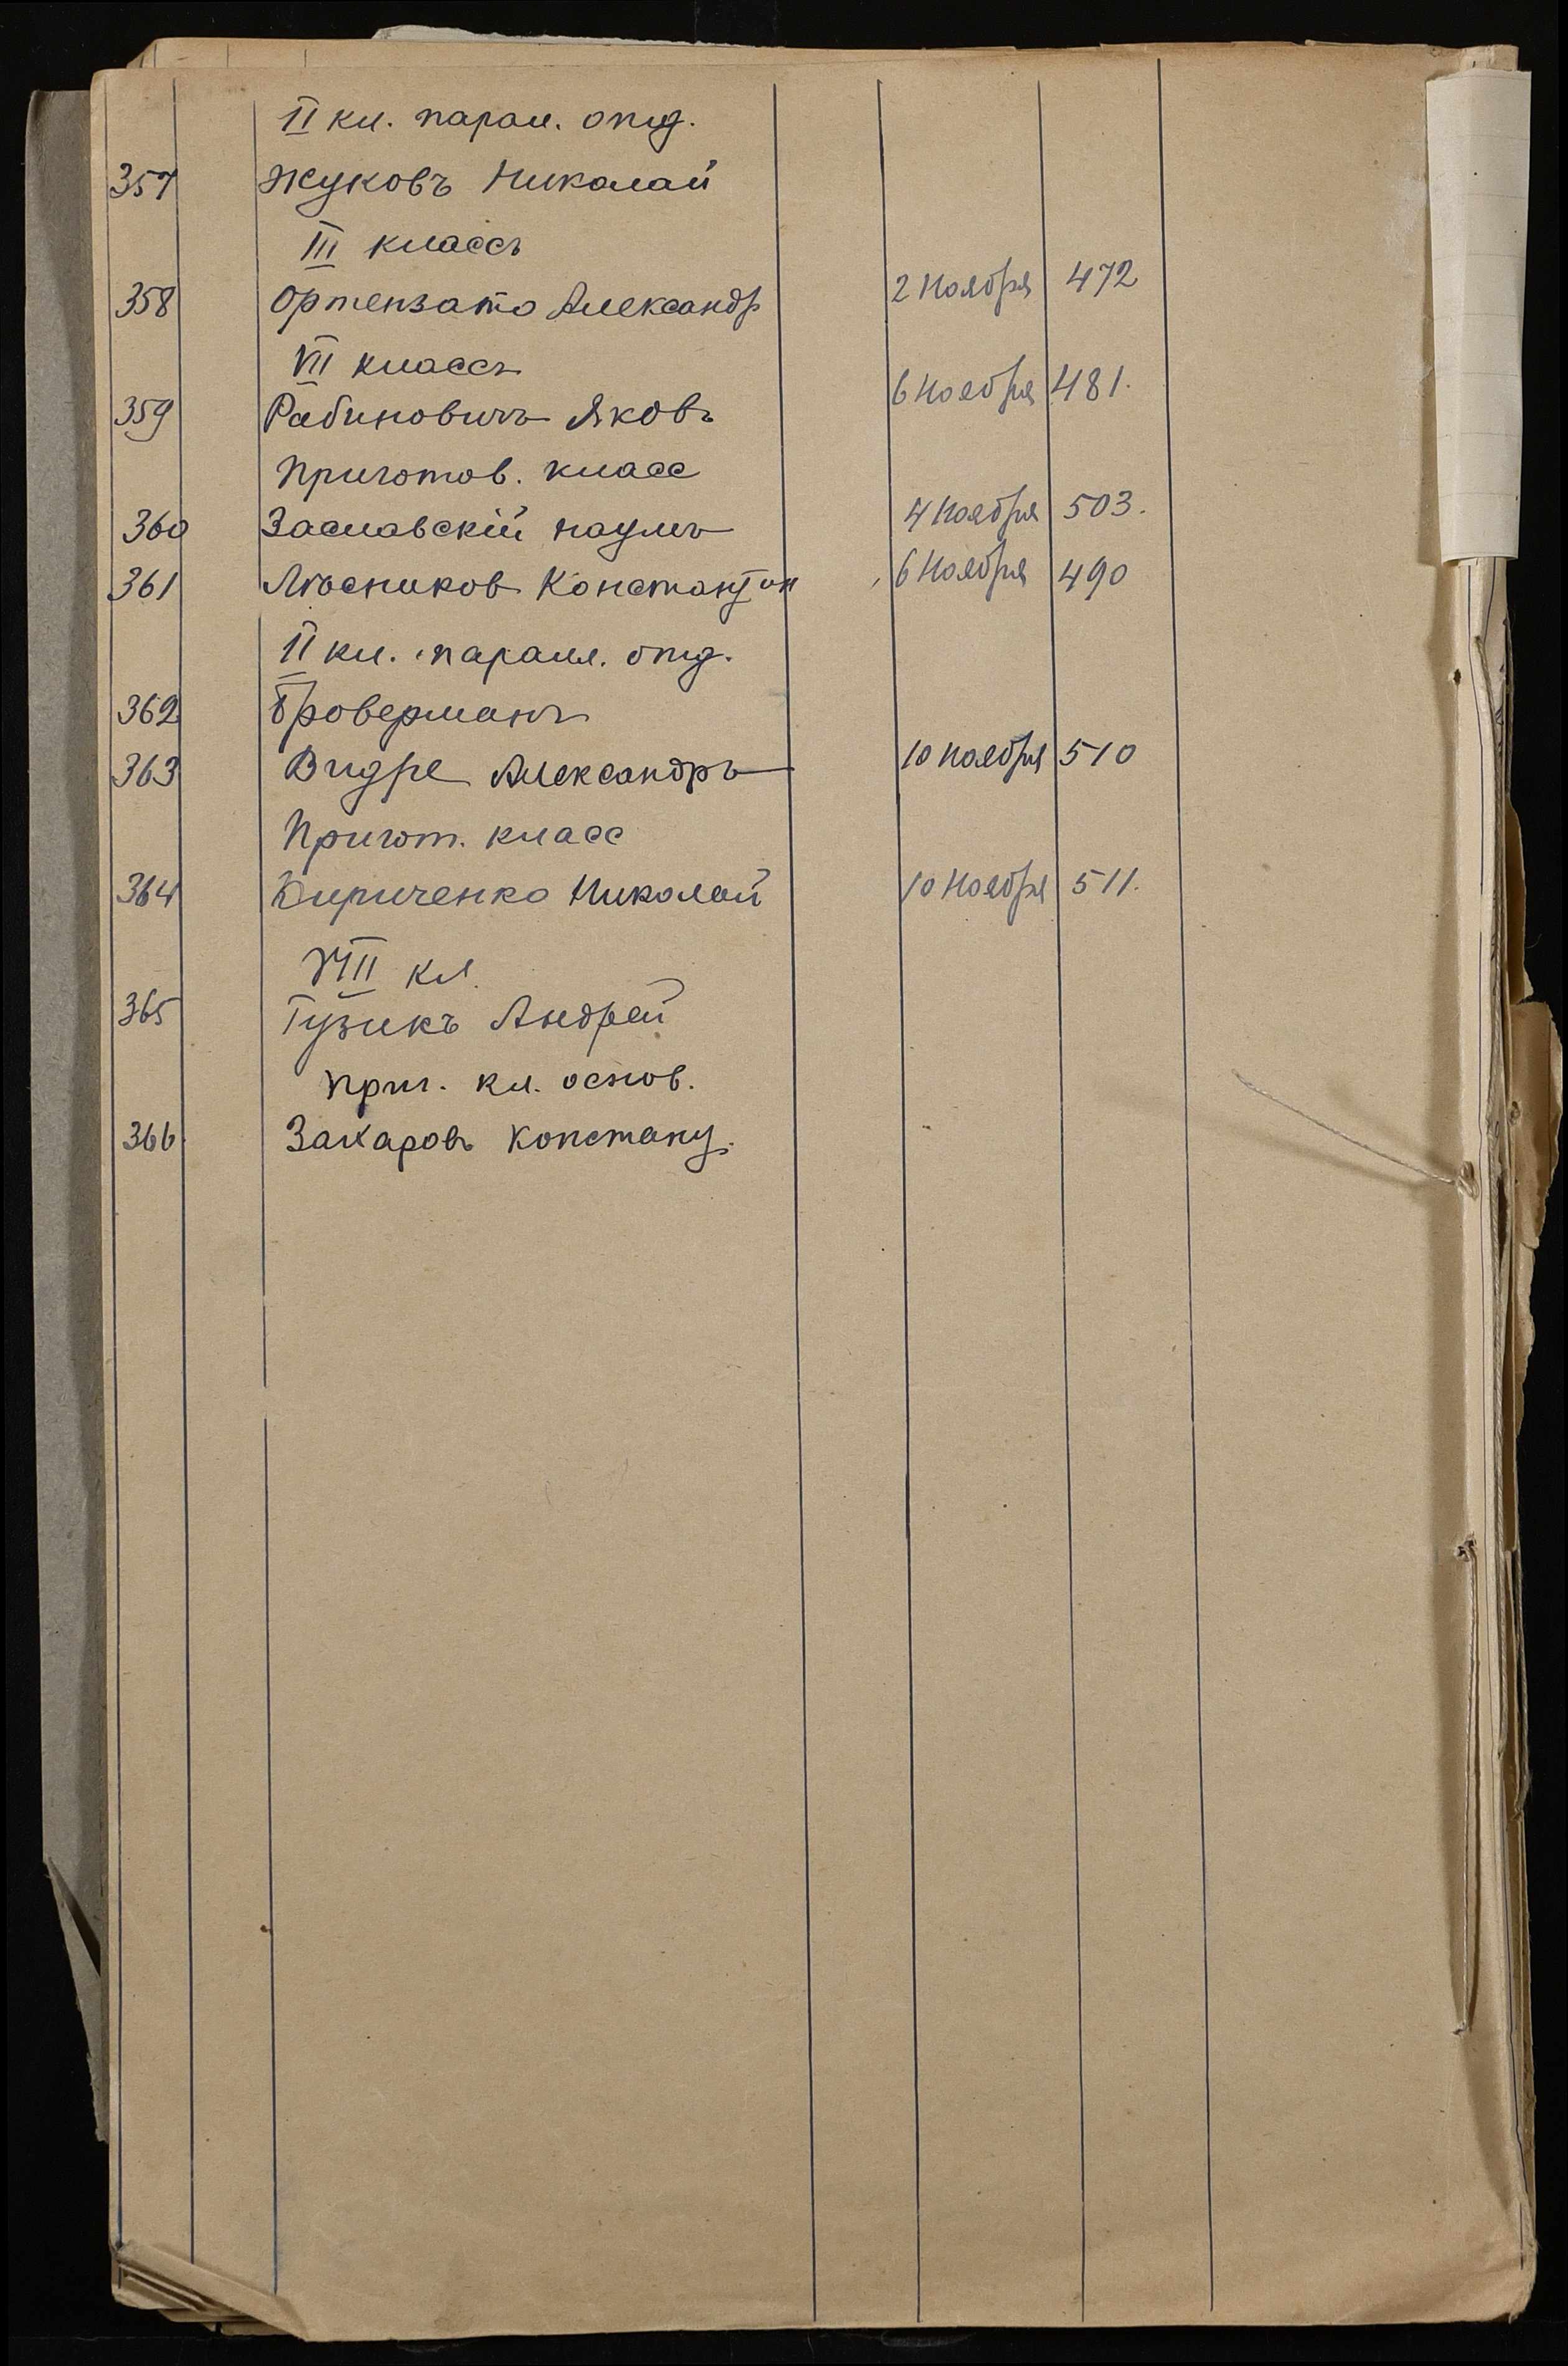 II кл. парал. отд.
357 Жуковъ Николай
III классъ
358 Ортензато Александр 2 Ноября 472
VII классъ
359 Рабиновичъ Яковъ 6 Ноября 481.
Приготов. класс
360 Заславскій Наумъ 4 Ноября 503.
361 Лѣсников Константин 6 Ноября 490
II кл. паралл. отд.
362 Броверманъ
363 Видре Александръ 10 Ноября 510
Пригот. класс
364 Кириченко Николай 10 Ноября 511.
VIII кл.
365 Гузикъ Андрей
приг. кл. основ.
366. Захаровъ Констант.